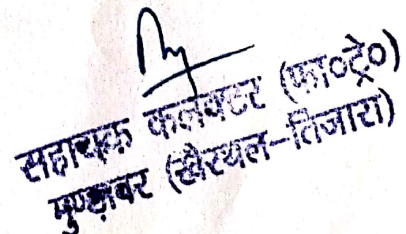 सहायक कलेक्टर (फा०ट्रे०)
मुण्डावर (खैरथल-तिजारा)